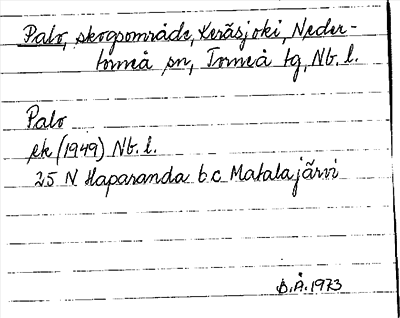 Palo, skogsområde, Keräsjoki, Neder-
torneå sn, Torneå tg, Nb. l.
Palo
ek (1949) Nb. l.
25 N Haparanda b c Matalajärvi
B.Å. 1973